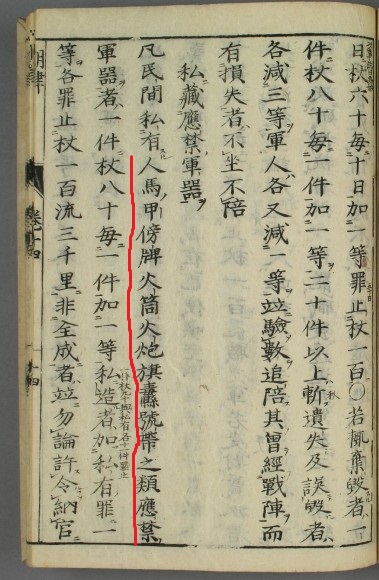 日杖六十每十日加一等罪止杖一百○若風棄毀者一
件杖八十每一件加一等二十件以上斬遺失及誤毀者
各減三等軍人各又減一等竝驗數追陪其曾經戰陣而
有損失者不坐不陪
私藏應禁軍器
凡民間私有人馬甲傍牌火筒火炮旗纛號帶之類應禁
軍器者一件杖八十每一件加一等私造者加私有罪一
等各罪止杖一百流三千里非全成者竝勿論許令納官
明律
卷十四
十四